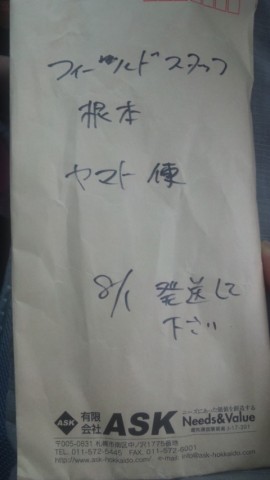 フィールドスタッフ
根本
ヤマト便
8/1 発送して
下さい
ASK 有限会社 ASK Needs&Value
〒005-0831 札幌市南区中ノ沢1775番地
TEL. 011-572-5445 FAX. 011-572-6001
http://www.ask-hokkaido.com/ e-mail info@ask-hokkaido.com